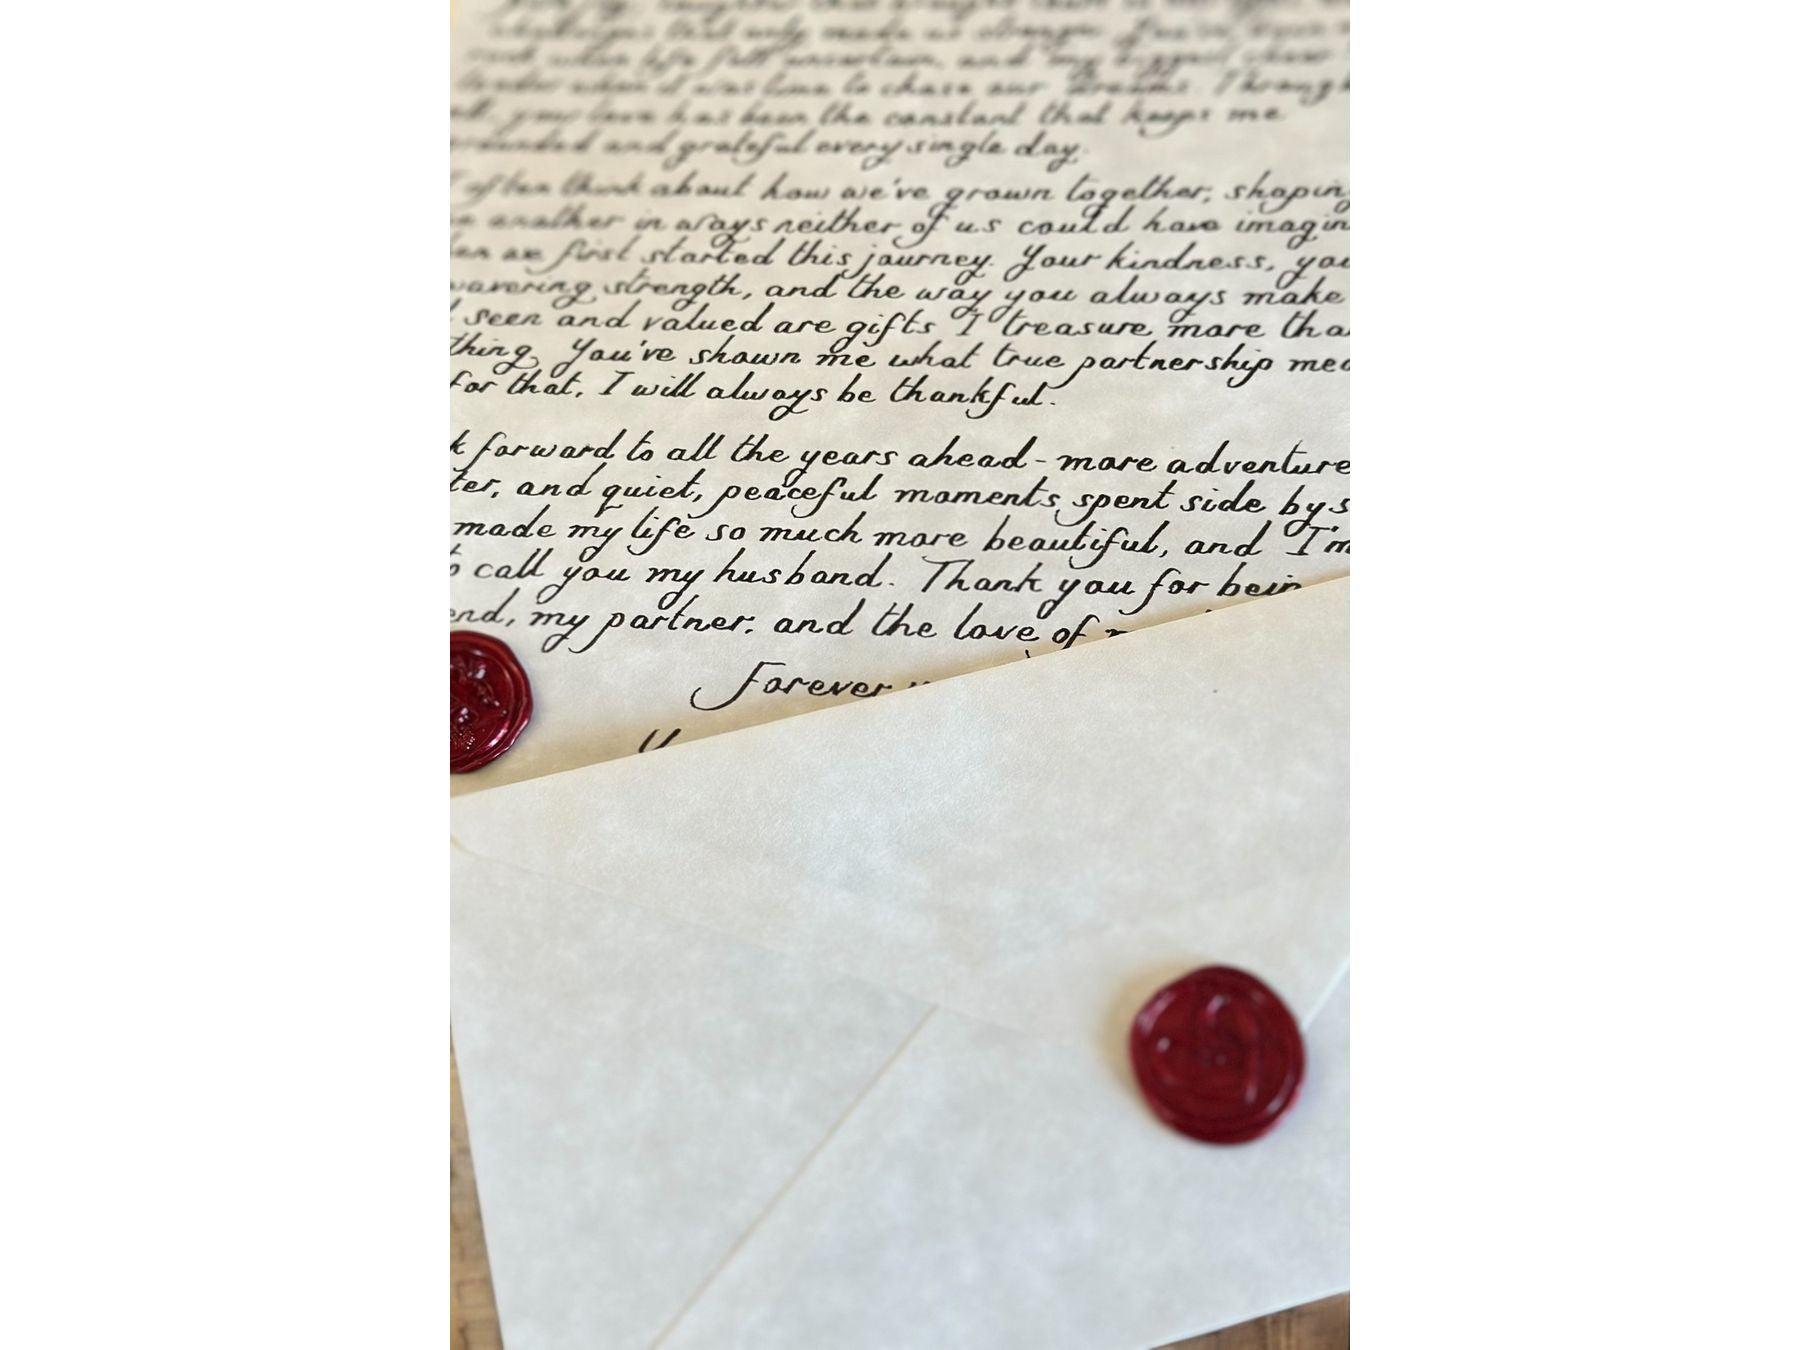 challenges that only made us stronger. You've been
rock when life felt uncertain, and my biggest cheer
leader when it was time to chase our dreams. Through
all, your love has been the constant that keeps me
grounded and grateful every single day.
I often think about how we've grown together, shaping
one another in ways neither of us could have imagin
hen we first started this journey. Your kindness, you
wavering strength, and the way you always make
l seen and valued are gifts I treasure more tha
thing. You've shown me what true partnership mea
for that, I will always be thankful.
k forward to all the years ahead - more adventure
ter, and quiet, peaceful moments spent side by s
made my life so much more beautiful, and I'm
to call you my husband. Thank you for bein
end, my partner, and the love of
Forever